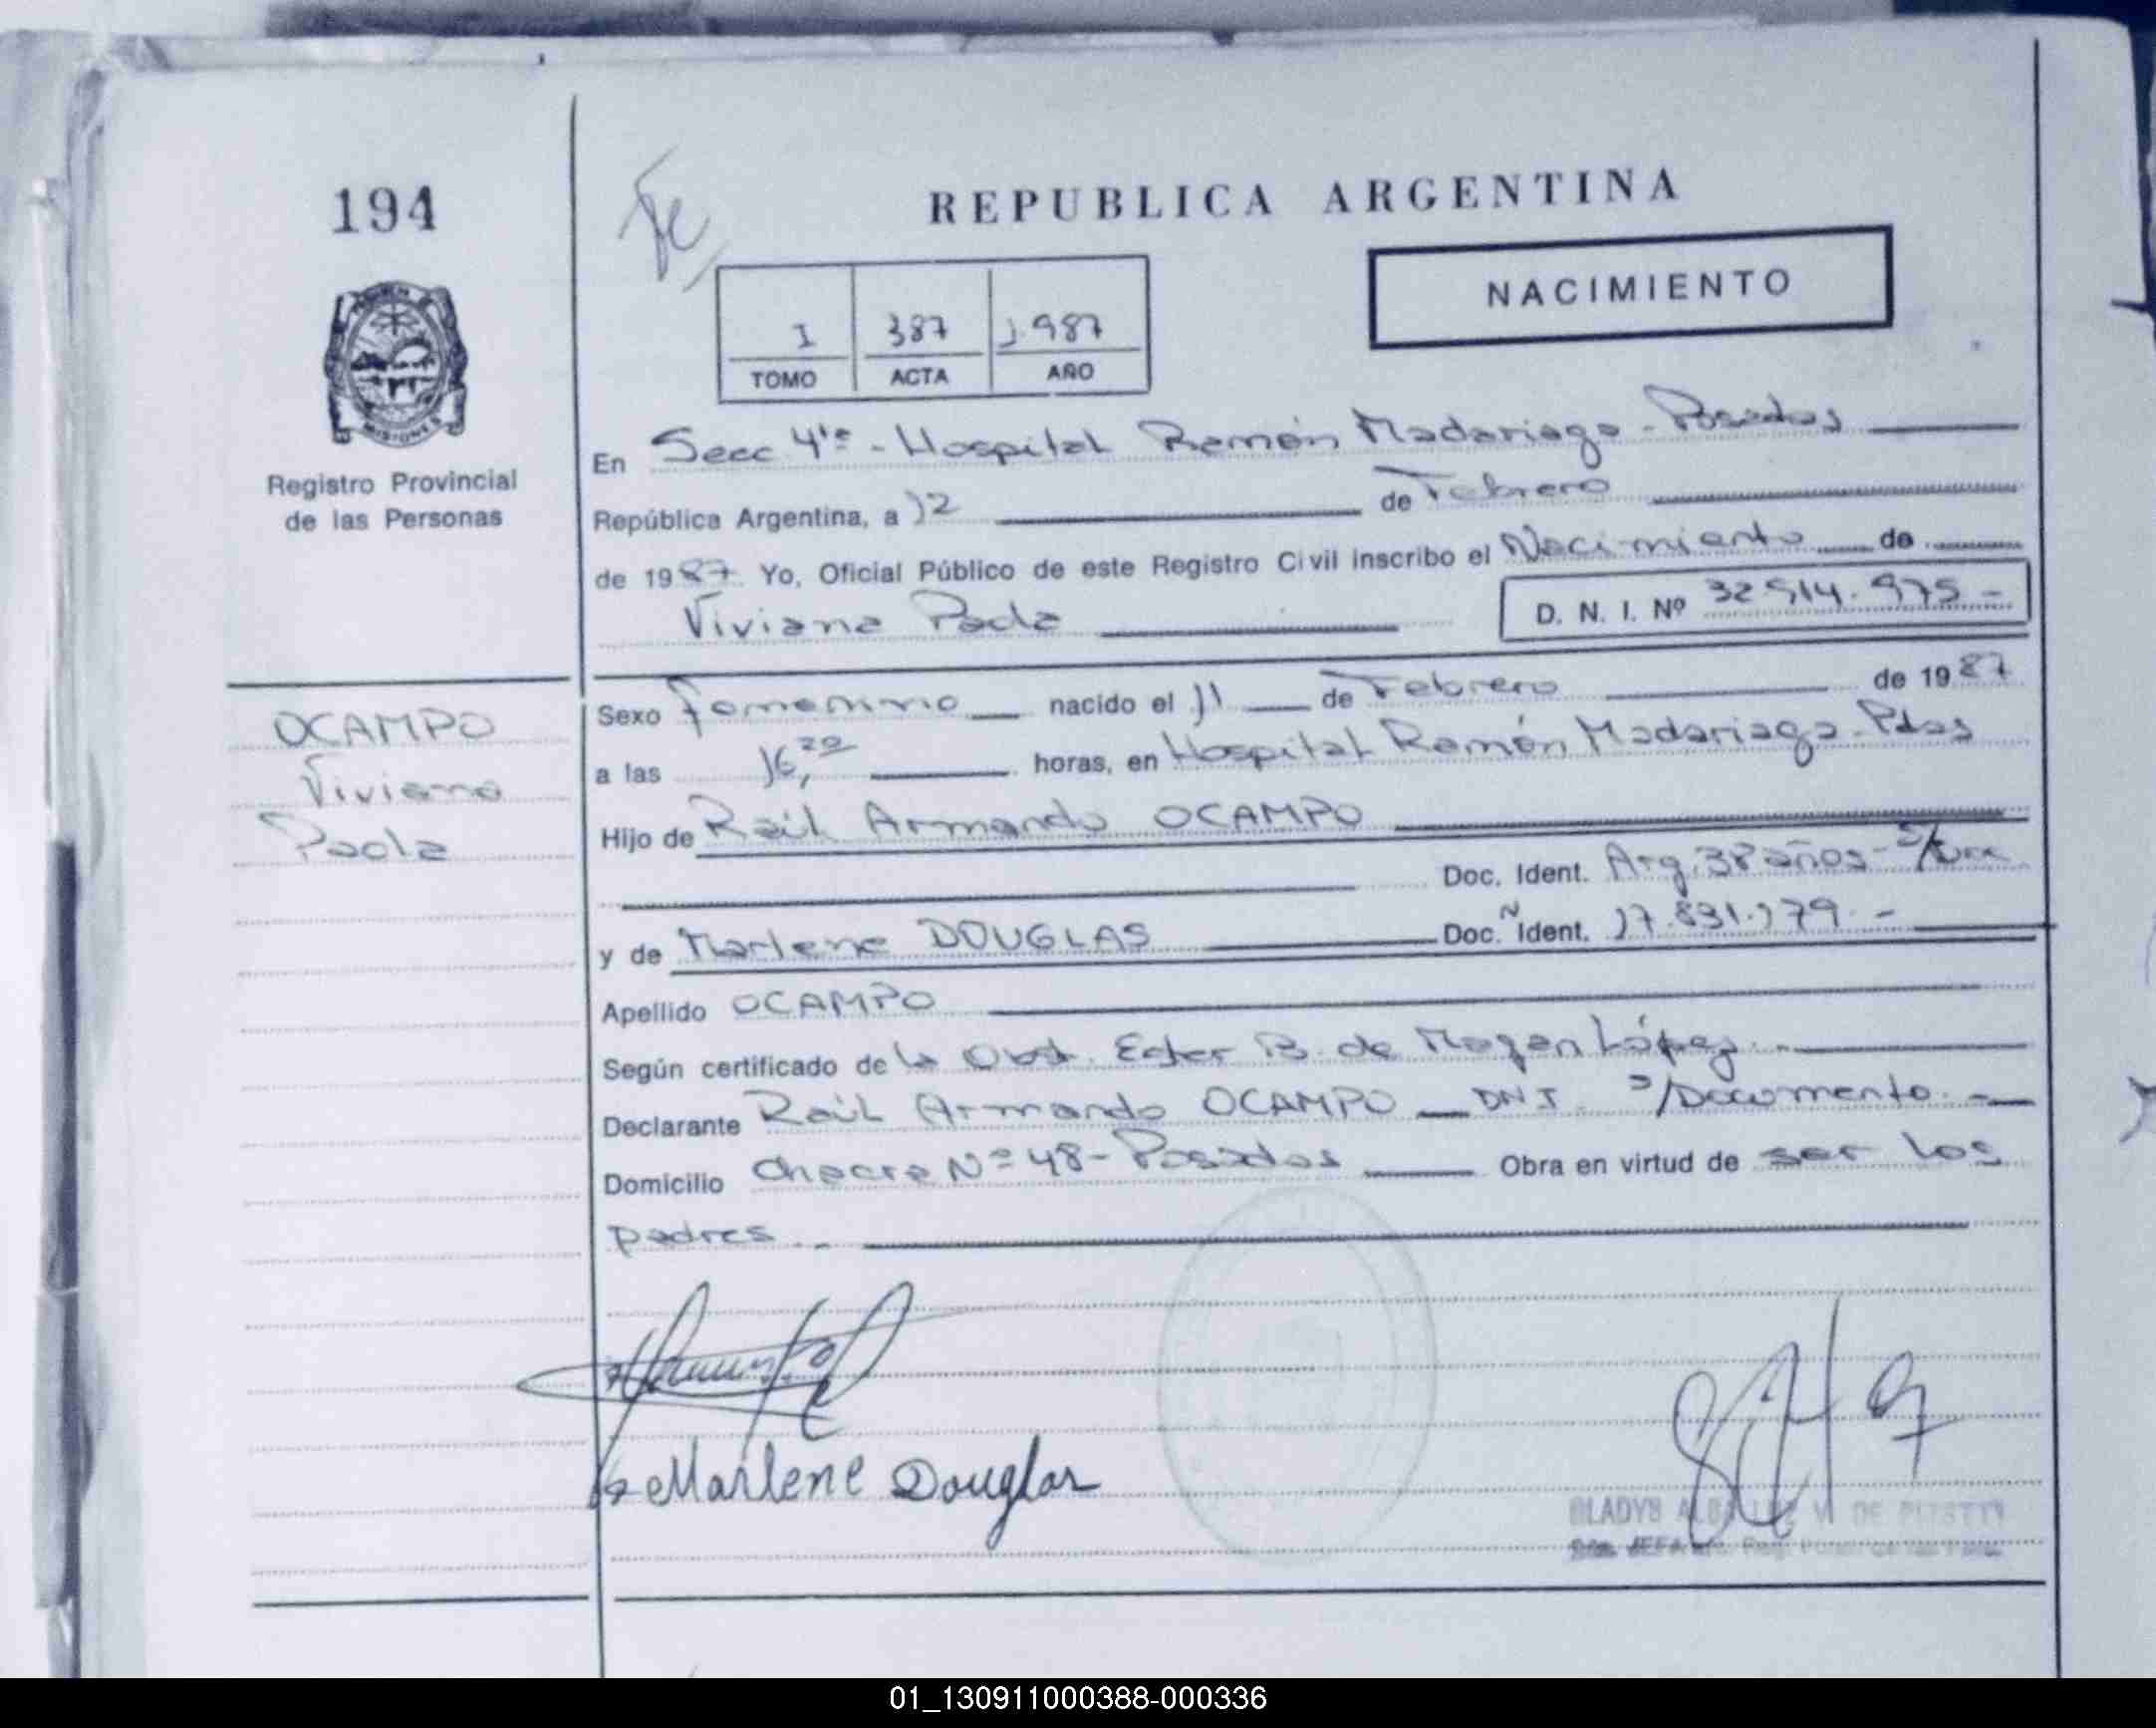 194
REPUBLICA ARGENTINA
NACIMIENTO
I 387 1.987
TOMO ACTA AÑO
MISIONES
Registro Provincial
de las Personas
En Secc 4ta - Hospital Ramón Madariaga - Posadas
República Argentina, a 12 de Febrero
de 1987 Yo, Oficial Público de este Registro Civil inscribo el Nacimiento de
Viviana Paola D. N. I. Nº 32.514.975 -
OCAMPO
Viviana
Paola
Sexo femenino nacido el 11 de Febrero de 1987
a las 16,20 horas, en Hospital Ramón Madariaga - Pdas
Hijo de Raúl Armando OCAMPO
Doc. Ident. Arg. 38 años -
y de Marlene DOUGLAS Doc. Ñ Ident. 17.831.179 -
Apellido OCAMPO
Según certificado de la Obst. Ester B. de López -
Declarante Raúl Armando OCAMPO DNI S/Documento. -
Domicilio Chacra Nº 48 - Posadas Obra en virtud de ser los
padres. -
Marlene Douglas
GLADYS ALBA V. DE
JEFA
01_130911000388-000336